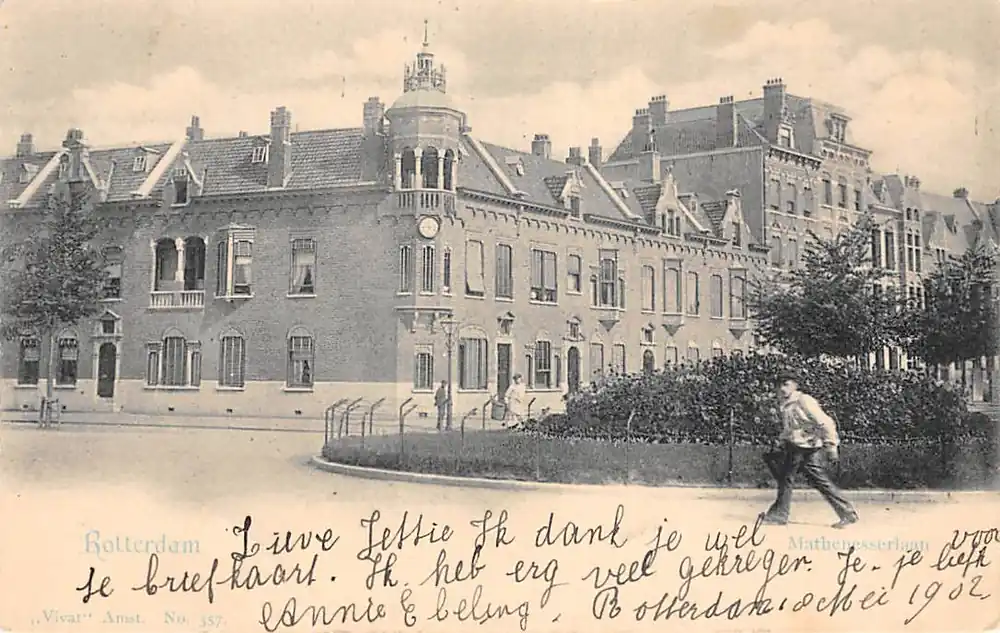 Rotterdam
Mathenesserlaan
Lieve Jettie Ik dank je wel voor
je briefkaart. Ik heb erg veel gekregen. Je je liefh
Annie Ebeling, Rotterdam 8 Mei 1902.
„Vivat" Amst. No. 357.